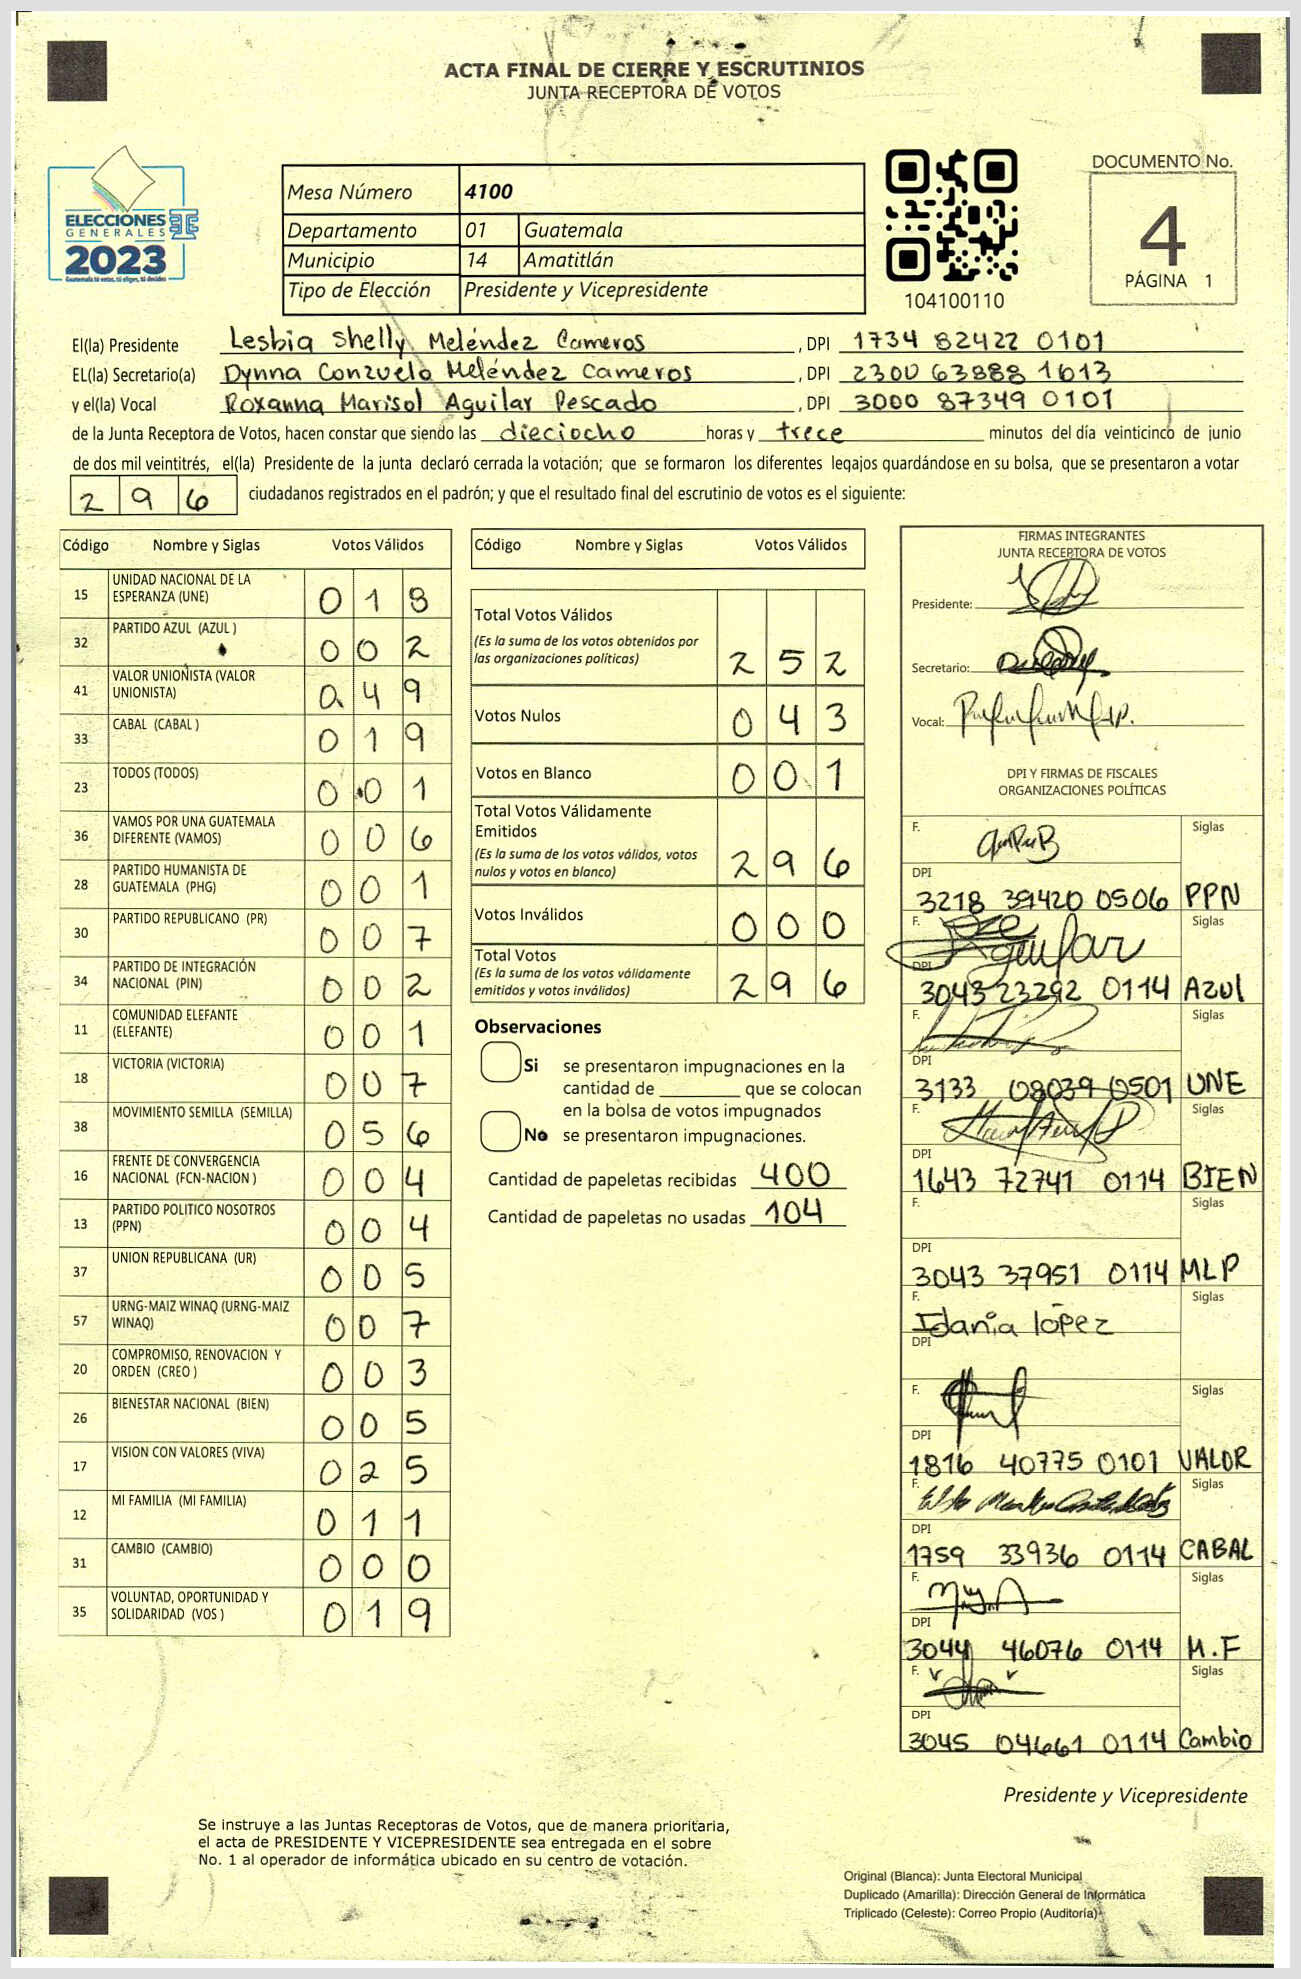 ACTA FINAL DE CIERRE Y ESCRUTINIOS
JUNTA RECEPTORA DE VOTOS
ELECCIONES
GENERALES
2023
Guatemala tú votas, tú eliges, tú decides
Mesa Número 4100
Departamento 01 Guatemala
Municipio 14 Amatitlán
Tipo de Elección Presidente y Vicepresidente
104100110
DOCUMENTO No.
4
PÁGINA 1
El(la) Presidente Lesbia Shelly Meléndez Cameros, DPI 1734 82422 0101
EL(la) Secretario(a) Dynna Conzuelo Meléndez Cameros, DPI 2300 63888 1613
y el(la) Vocal Roxanna Marisol Aguilar Pescado, DPI 3000 87349 0101
de la Junta Receptora de Votos, hacen constar que siendo las dieciocho horas y trece minutos del día veinticinco de junio
de dos mil veintitrés, el(la) Presidente de la junta declaró cerrada la votación; que se formaron los diferentes legajos guardándose en su bolsa, que se presentaron a votar
296 ciudadanos registrados en el padrón; y que el resultado final del escrutinio de votos es el siguiente:
Código Nombre y Siglas Votos Válidos
15 UNIDAD NACIONAL DE LA ESPERANZA (UNE) 018
32 PARTIDO AZUL (AZUL ) 002
41 VALOR UNIONISTA (VALOR UNIONISTA) 049
33 CABAL (CABAL ) 019
23 TODOS (TODOS) 001
36 VAMOS POR UNA GUATEMALA DIFERENTE (VAMOS) 006
28 PARTIDO HUMANISTA DE GUATEMALA (PHG) 001
30 PARTIDO REPUBLICANO (PR) 007
34 PARTIDO DE INTEGRACIÓN NACIONAL (PIN) 002
11 COMUNIDAD ELEFANTE (ELEFANTE) 001
18 VICTORIA (VICTORIA) 007
38 MOVIMIENTO SEMILLA (SEMILLA) 056
16 FRENTE DE CONVERGENCIA NACIONAL (FCN-NACION ) 004
13 PARTIDO POLITICO NOSOTROS (PPN) 004
37 UNION REPUBLICANA (UR) 005
57 URNG-MAIZ WINAQ (URNG-MAIZ WINAQ) 007
20 COMPROMISO, RENOVACION Y ORDEN (CREO ) 003
26 BIENESTAR NACIONAL (BIEN) 005
17 VISION CON VALORES (VIVA) 025
12 MI FAMILIA (MI FAMILIA) 011
31 CAMBIO (CAMBIO) 000
35 VOLUNTAD, OPORTUNIDAD Y SOLIDARIDAD (VOS ) 019
Código Nombre y Siglas Votos Válidos
Total Votos Válidos
(Es la suma de los votos obtenidos por
las organizaciones políticas) 252
Votos Nulos 043
Votos en Blanco 001
Total Votos Válidamente
Emitidos
(Es la suma de los votos válidos, votos
nulos y votos en blanco) 296
Votos Inválidos 000
Total Votos
(Es la suma de los votos válidamente
emitidos y votos inválidos) 296
Observaciones
Si se presentaron impugnaciones en la
cantidad de ________ que se colocan
en la bolsa de votos impugnados
No se presentaron impugnaciones.
Cantidad de papeletas recibidas 400
Cantidad de papeletas no usadas 104
FIRMAS INTEGRANTES
JUNTA RECEPTORA DE VOTOS
Presidente:
Secretario:
Vocal:
DPI Y FIRMAS DE FISCALES
ORGANIZACIONES POLÍTICAS
F. Siglas
DPI
3218 39420 0506 PPN
F. Aguilar Siglas
DPI
3043 23292 0114 Azul
F. Siglas
DPI
3133 08039 0501 UNE
F. Siglas
DPI
1643 72741 0114 BIEN
F. Siglas
DPI
3043 37951 0114 MLP
F. Siglas
Idania lópez
DPI
F. Siglas
DPI
1816 40775 0101 VALOR
F. Siglas
DPI
1759 33936 0114 CABAL
F. Siglas
DPI
3044 46076 0114 M.F
F. Siglas
DPI
3045 04661 0114 Cambio
Presidente y Vicepresidente
Se instruye a las Juntas Receptoras de Votos, que de manera prioritaria,
el acta de PRESIDENTE Y VICEPRESIDENTE sea entregada en el sobre
No. 1 al operador de informática ubicado en su centro de votación.
Original (Blanca): Junta Electoral Municipal
Duplicado (Amarilla): Dirección General de Informática
Triplicado (Celeste): Correo Propio (Auditoría)